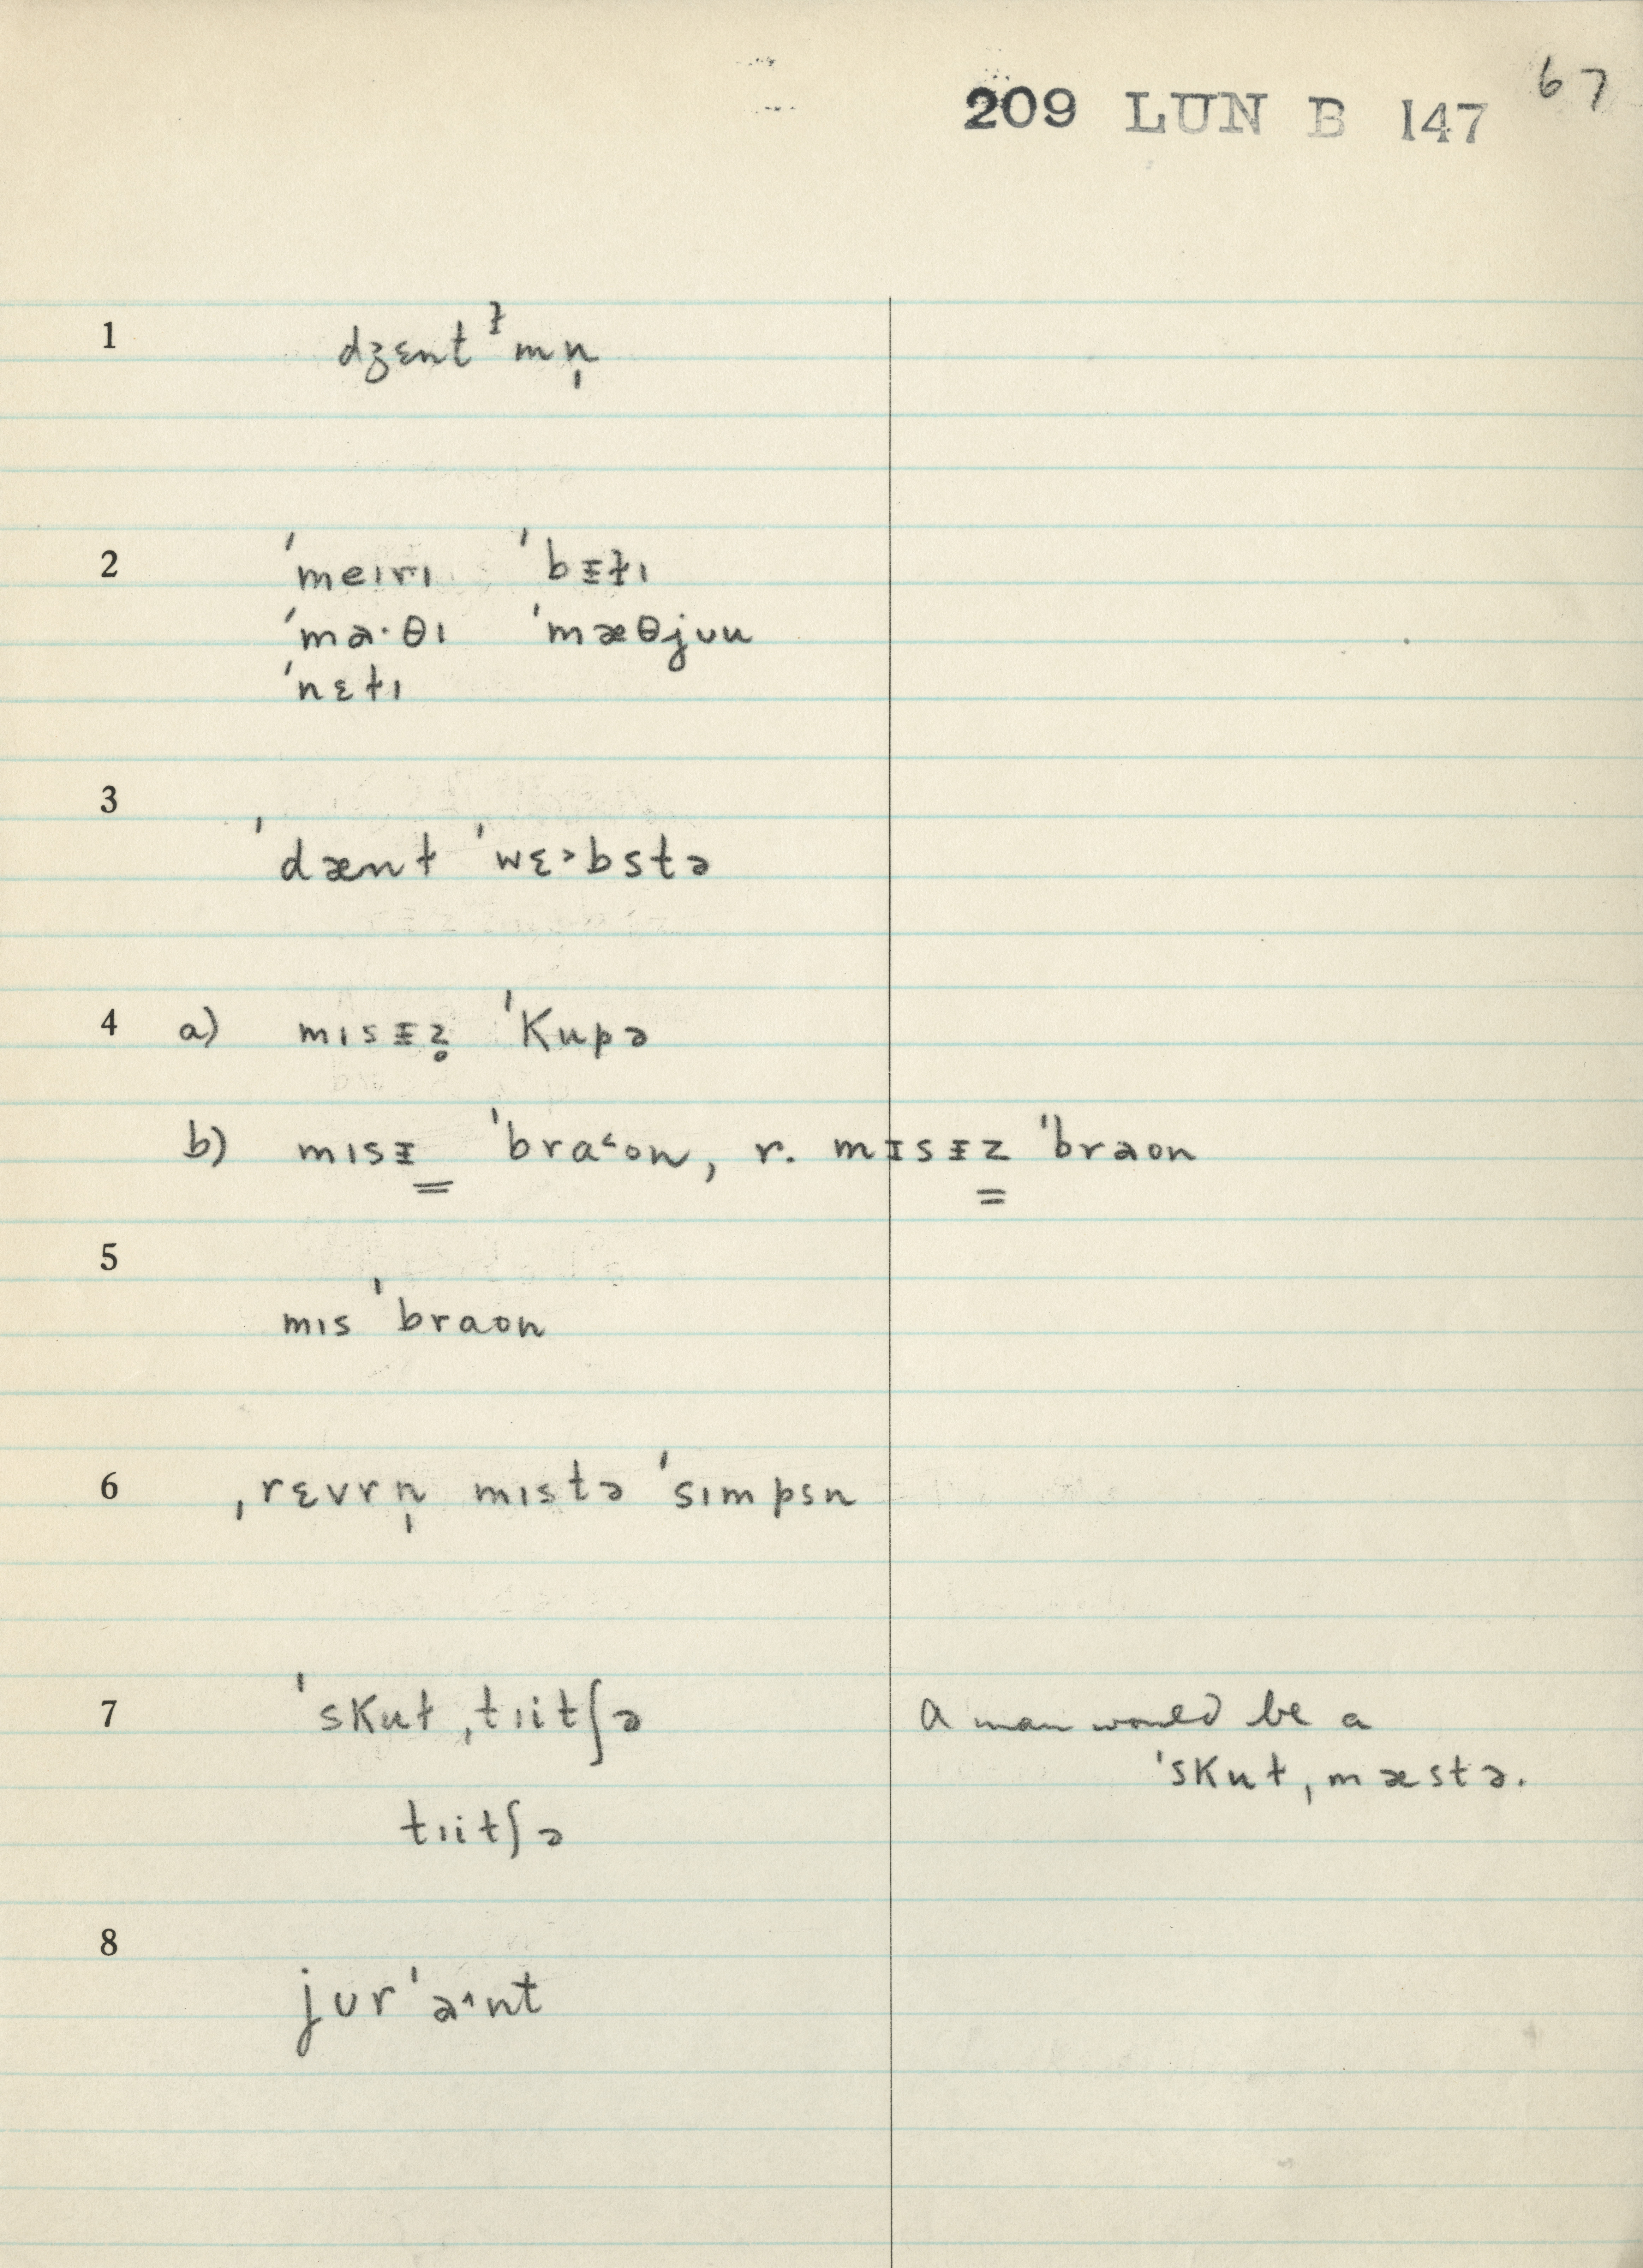 67
209 LUN B 147
1 dʒɛntɫmn̩
2 ˈmeɪrɪ ˈbᵻɫɪ
ˈmɑ·θɪ ˈmæθjʊu
ˈnɛɫɪ
3 ˈdænɫ ˈwɛ˃bstə
4 a) mɪsᵻz̥ ˈkupə
b) mɪsᵻ ˈbra˂on, r. mᵻsᵻz ˈbraon
5 mɪs ˈbraon
6 ˌrɛvrn̩ mɪstə ˈsɪmpsn
7 ˈskuɫˌtɪitʃə A man would be a
ˈskuɫˌmæstə.
tɪitʃə
8 jʊrˈa˄nt